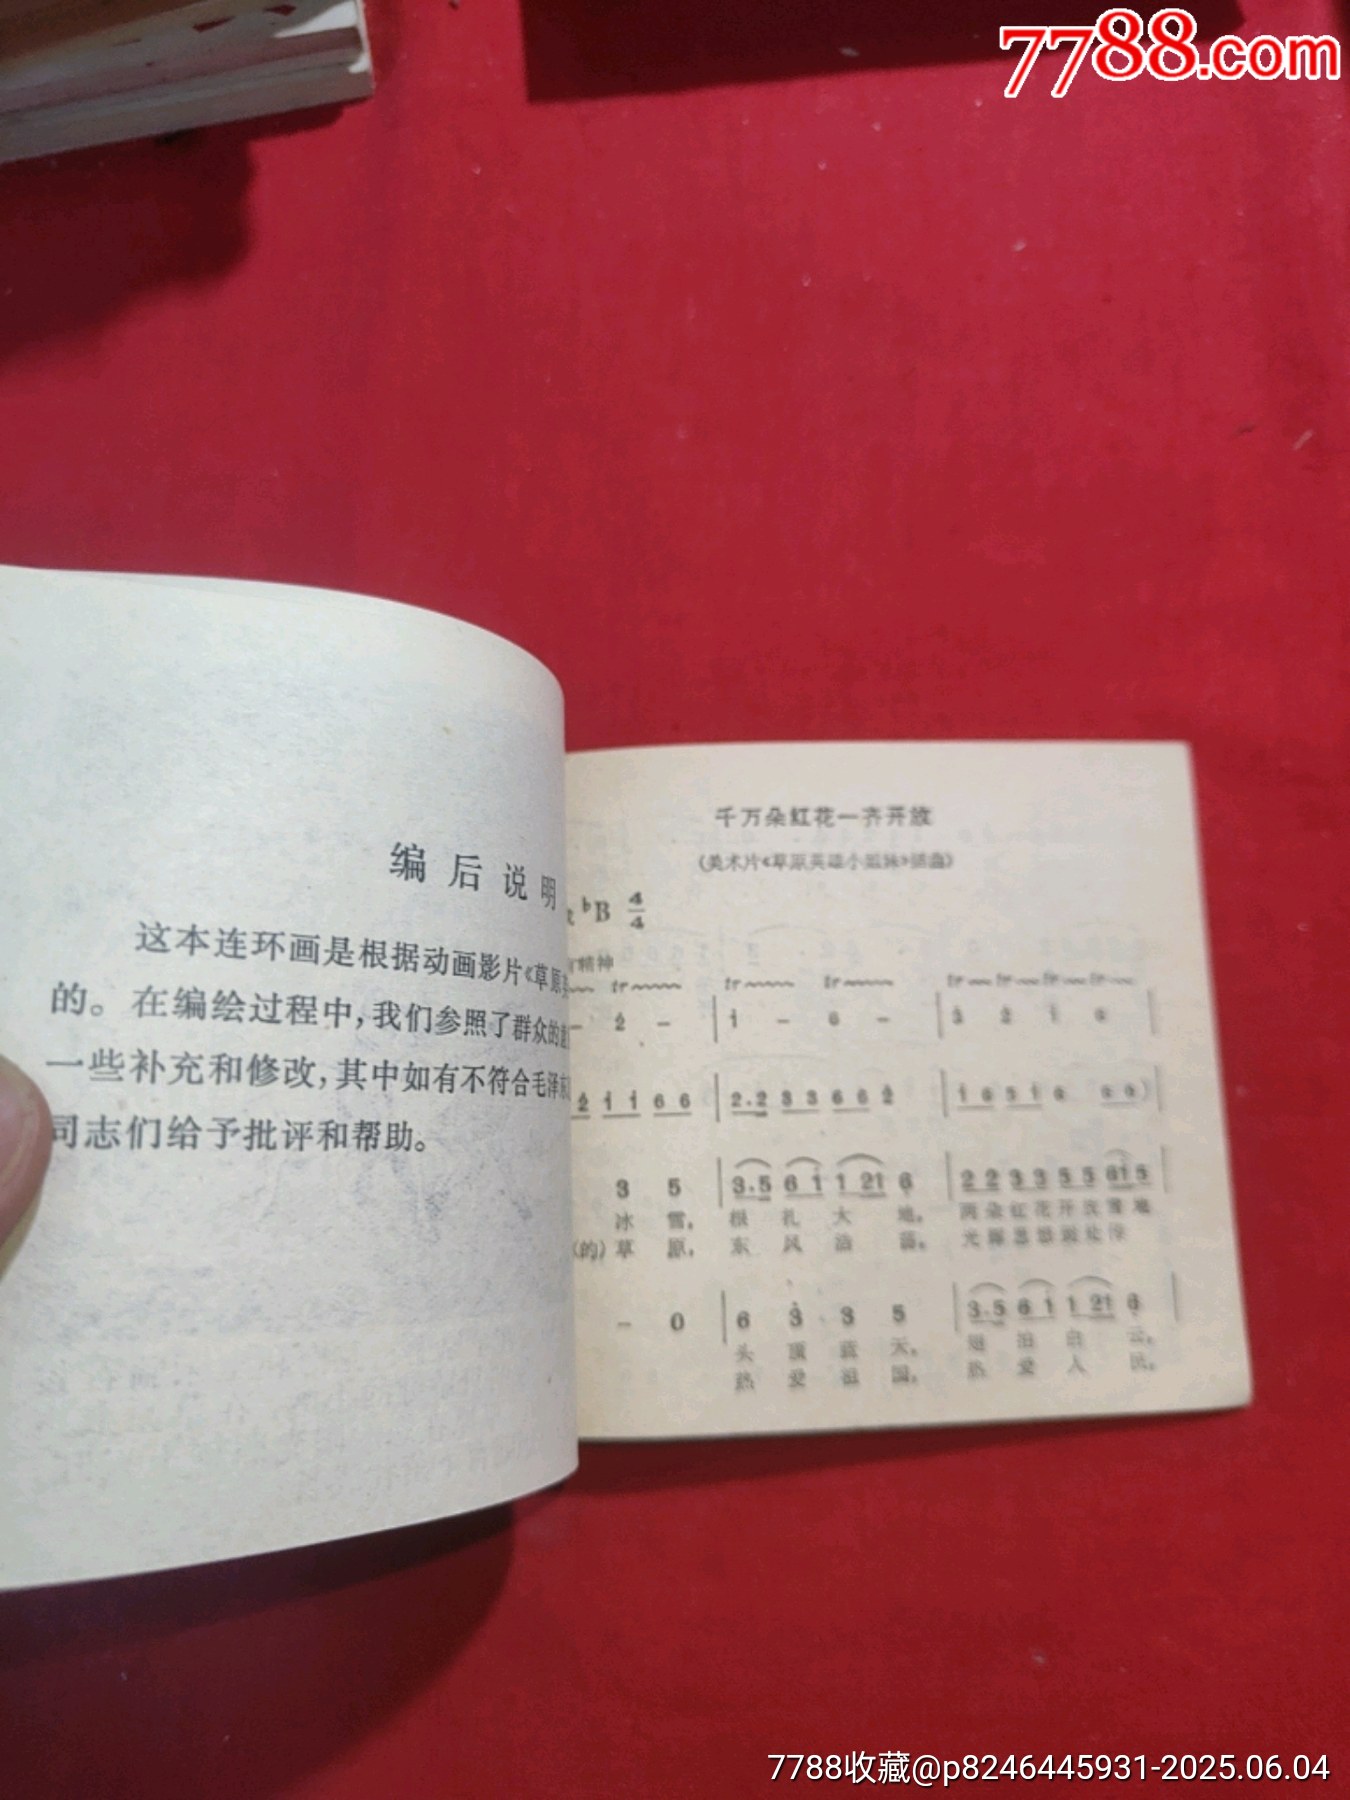 7788.com
编后说明
这本连环画是根据动画影片《草原
的。在编绘过程中，我们参照了群众的
一些补充和修改，其中如有不符合毛泽东
同志们给予批评和帮助。
千万朵红花一齐开放
(美术片《草原英雄小姐妹》插曲)
ᵇB 4/4
精神
tr tr tr tr tr tr tr
– 2̇ – | 1̇ – 6 – | 3̇ 2̇ 1̇ 6 |
2̇ 1̇ 1̇ 6 6 | 2.2 3 3 6 6 2̇ |
3 5 | 3.5 6 1̇ 1̇ 21 6 | 2 2 3 3 5 5 61 5
冰 雪， 根 扎 大 地， 两朵红花开
(的)草 原， 东 风 浩 荡，
– 0 | 6 3̇ 3 5 | 3.5 6 1̇ 1̇ 21 6
头 顶 蓝 天， 白 云，
热 爱 祖 国， 热 爱 人 民，
7788收藏@p8246445931-2025.06.04